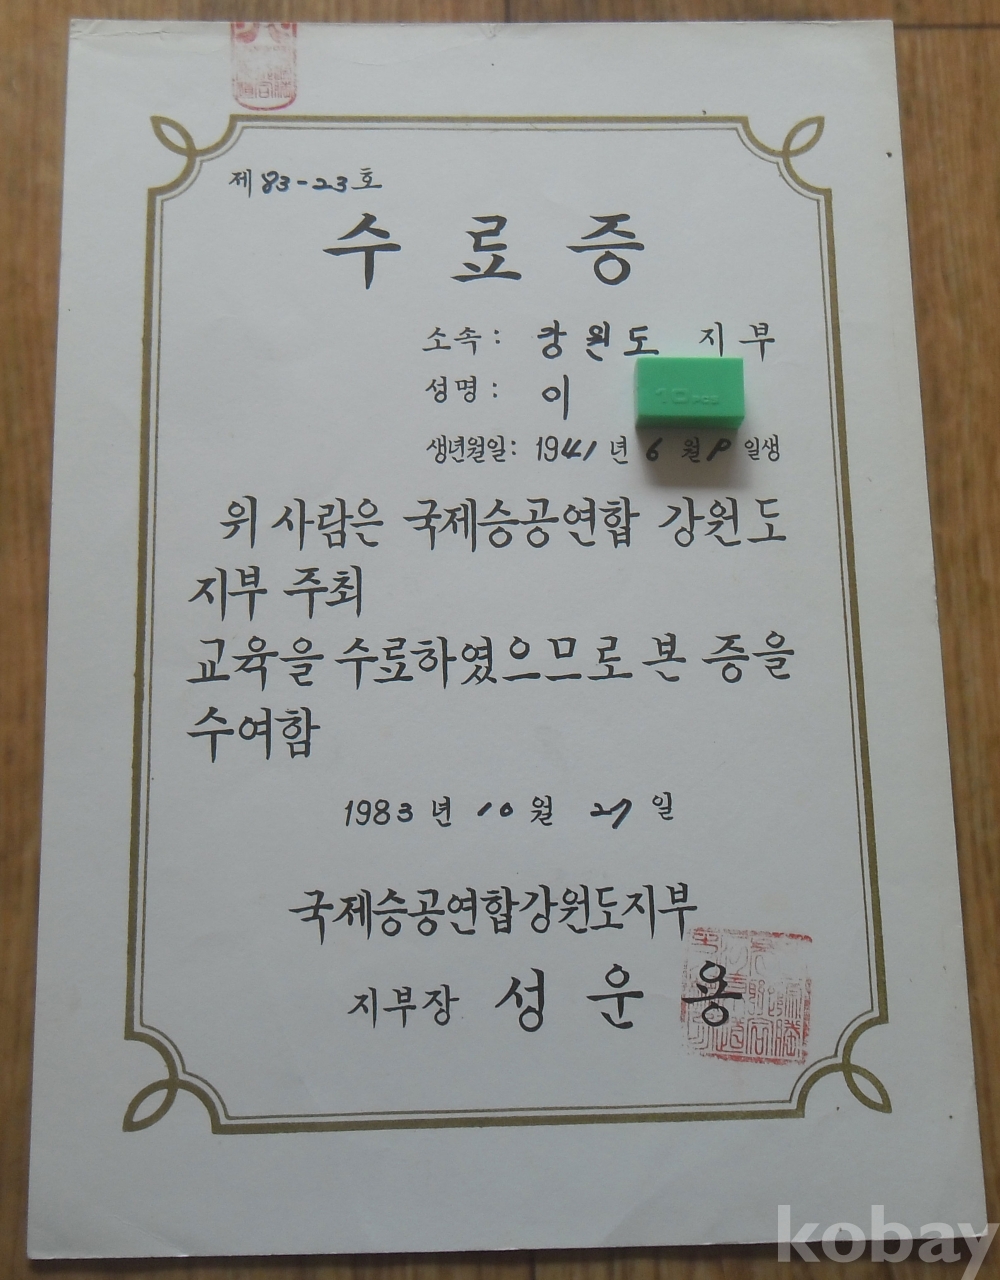 제 83-23 호
수 료 증
소속: 강원도 지부
성명: 이
생년월일: 1941 년 6 월 일생
위 사람은 국제승공연합 강원도
지부 주최
교육을 수료하였으므로 본 증을
수여함
1983 년 10 월 27 일
국제승공연합강원도지부
지부장 성 운 용
kobay